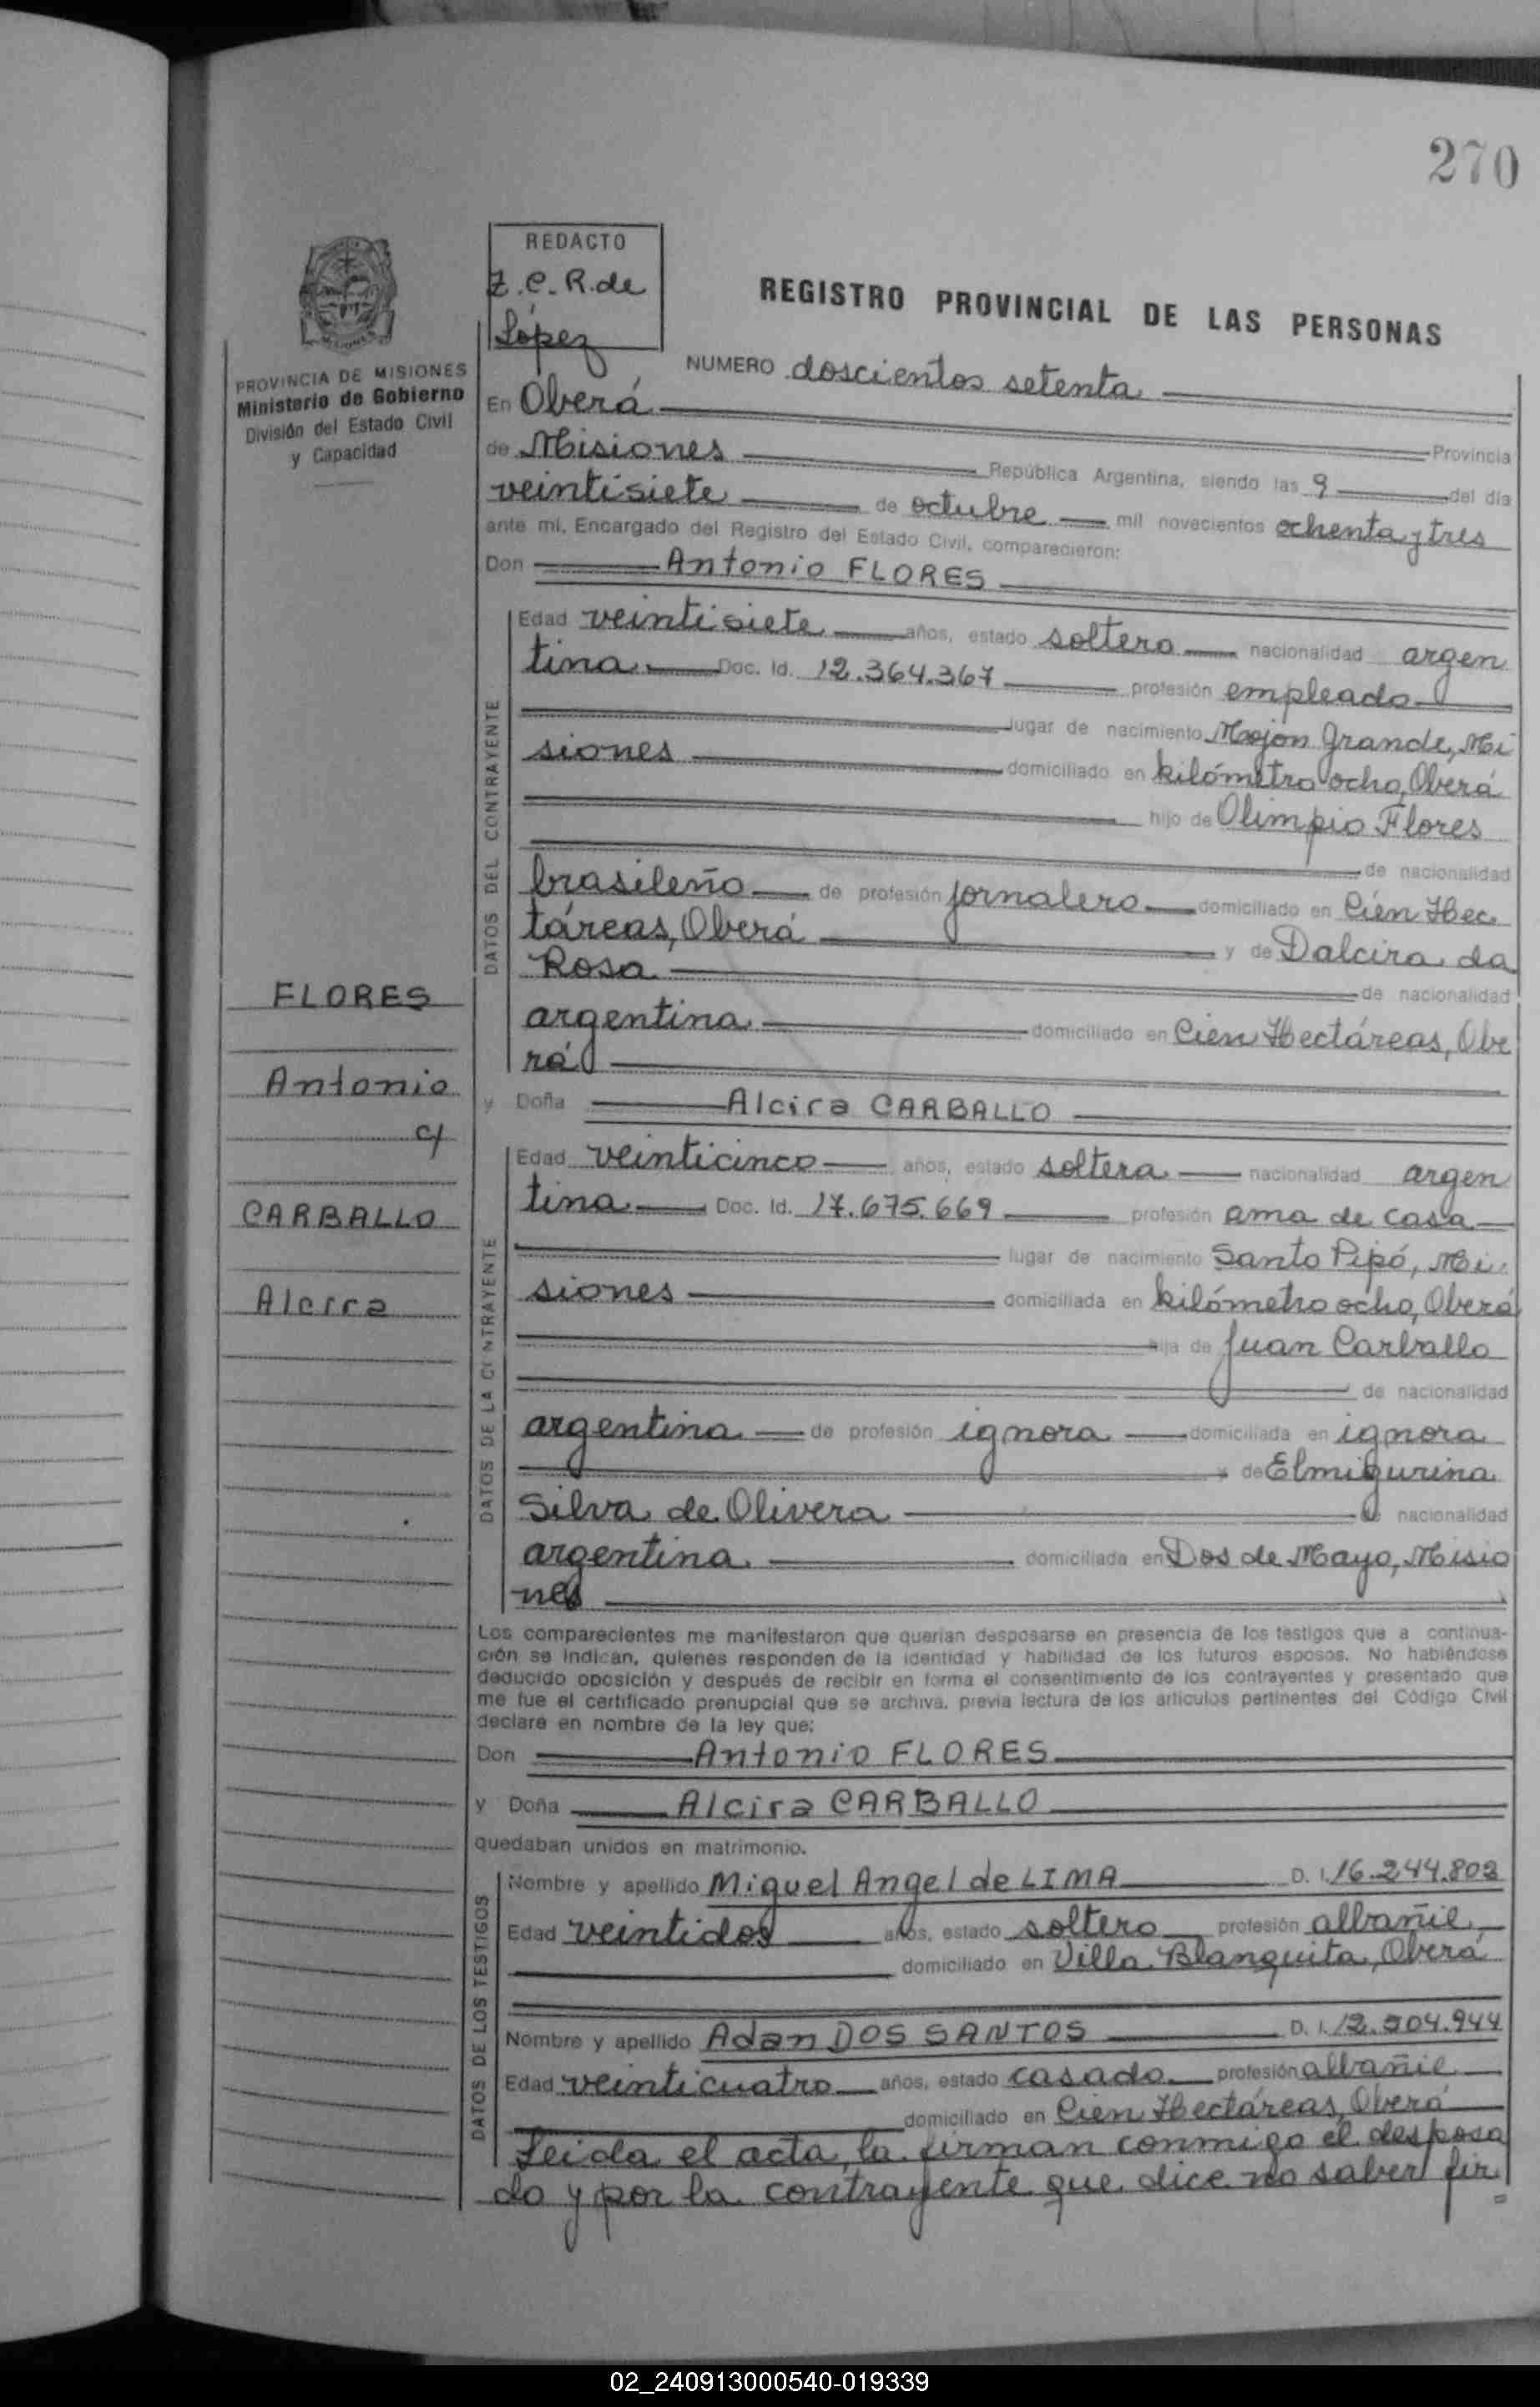 270
REDACTO
Z.C.R. de
López
REGISTRO PROVINCIAL DE LAS PERSONAS
PROVINCIA DE MISIONES
Ministerio de Gobierno
División del Estado Civil
y Capacidad
NUMERO doscientos setenta
En Oberá Provincia
de Misiones República Argentina, siendo las 9 del día
veintisiete de octubre mil novecientos ochenta y tres
ante mí, Encargado del Registro del Estado Civil, comparecieron:
Don Antonio FLORES
DATOS DEL CONTRAYENTE
Edad veintisiete años, estado soltero nacionalidad argen
tina Doc. Id. 12.364.367 profesión empleado
lugar de nacimiento Mojon Grande, Mi
siones domiciliado en kilómetro ocho, Oberá
hijo de Olimpio Flores
de nacionalidad
brasileño de profesión jornalero domiciliado en Cien Hec
táreas, Oberá y de Dalcira da
Rosa de nacionalidad
argentina domiciliado en Cien Hectáreas, Obe
rá
FLORES
Antonio
c/
CARBALLO
Alcira
y Doña Alcira CARBALLO
DATOS DE LA CONTRAYENTE
Edad veinticinco años, estado soltera nacionalidad argen
tina Doc. Id. 17.675.669 profesión ama de casa
lugar de nacimiento Santo Pipó, Mi
siones domiciliada en kilómetro ocho, Oberá
hija de Juan Carballo
de nacionalidad
argentina de profesión ignora domiciliada en ignora
y de Elmigurina
Silva de Olivera nacionalidad
argentina domiciliada en Dos de Mayo, Misio
nes
Los comparecientes me manifestaron que querían desposarse en presencia de los testigos que a continua-
ción se indican, quienes responden de la identidad y habilidad de los futuros esposos. No habiéndose
deducido oposición y después de recibir en forma el consentimiento de los contrayentes y presentado que
me fue el certificado prenupcial que se archiva, previa lectura de los artículos pertinentes del Código Civil
declare en nombre de la ley que:
Don Antonio FLORES
y Doña Alcira CARBALLO
quedaban unidos en matrimonio.
DATOS DE LOS TESTIGOS
Nombre y apellido Miguel Angel de LIMA D. I. 16.244.803
Edad veintidos años, estado soltero profesión albañil
domiciliado en Villa Blanquita, Oberá
Nombre y apellido Adan DOS SANTOS D. I. 12.504.944
Edad veinticuatro años, estado casado profesión albañil
domiciliado en Cien Hectáreas, Oberá
Leida el acta, la firman conmigo el desposa
do y por la contrayente que dice no saber fir=
02_240913000540-019339